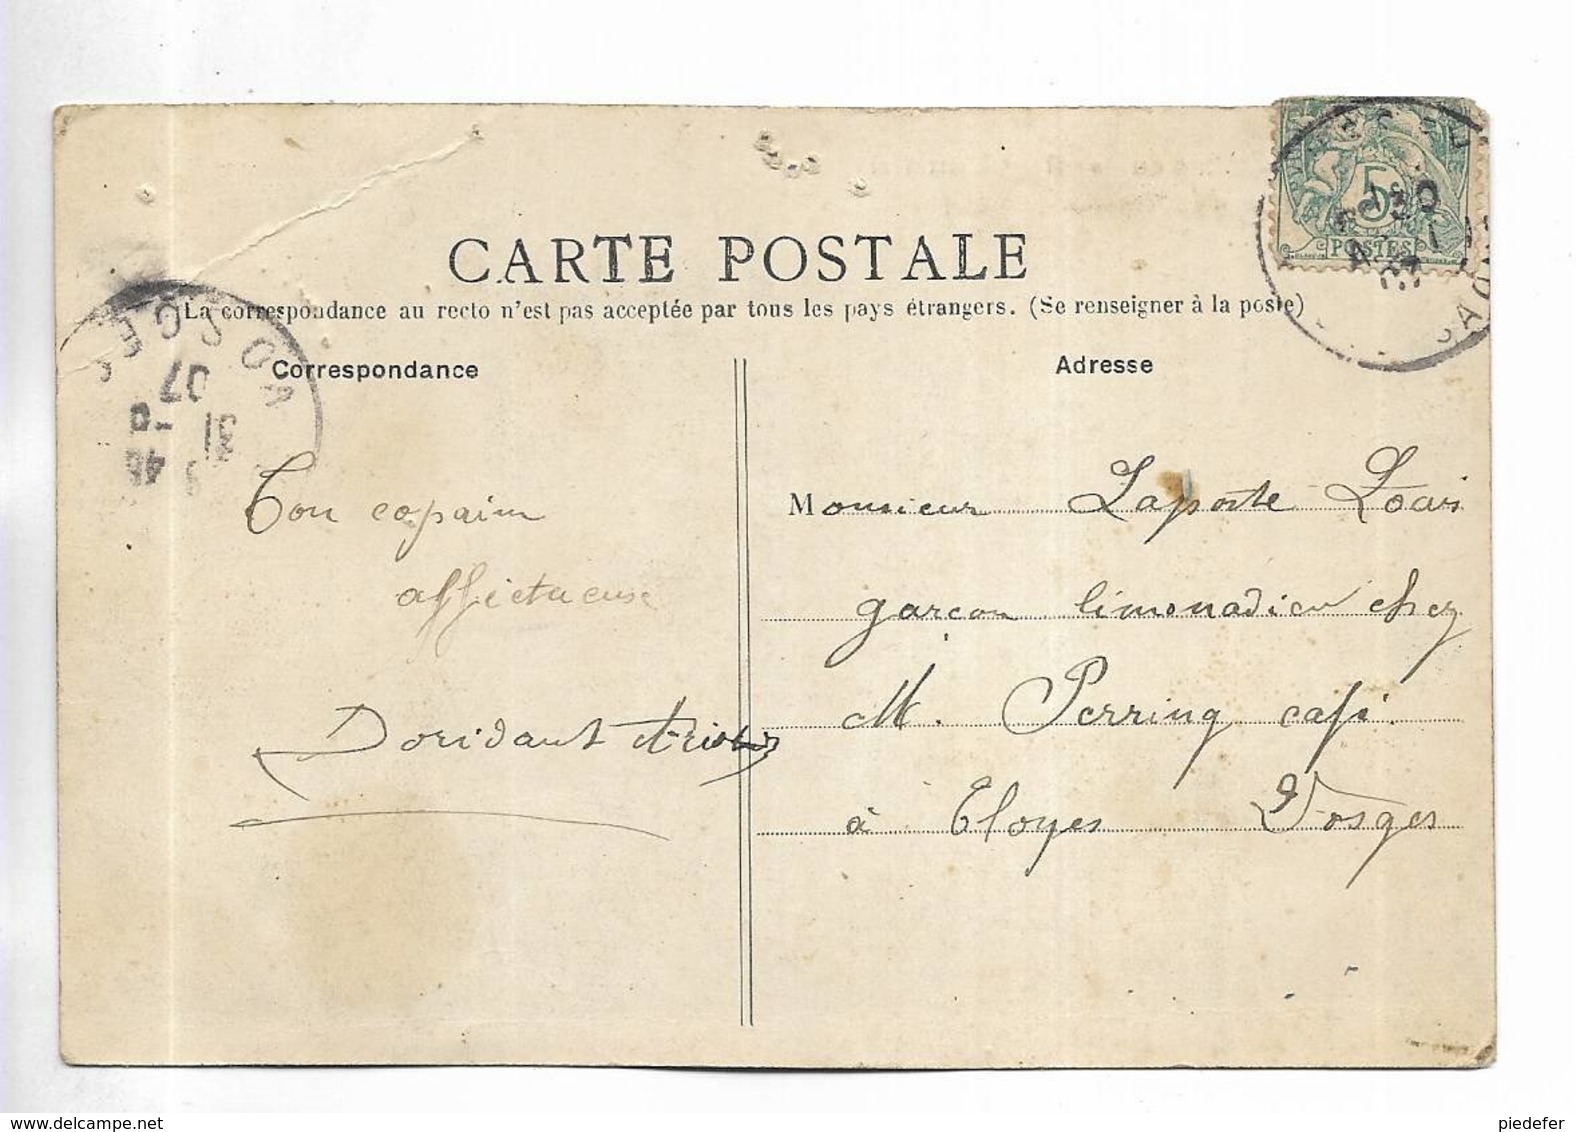 CARTE POSTALE
La correspondance au recto n'est pas acceptée par tous les pays étrangers. (Se renseigner à la poste)
Correspondance
Adresse
5
POSTES
VOSGES
31
07
Ton copain
affectueuse
Doridant
Monsieur Laporte Louis
garçon limonadier chez
M. Perring café
à Eloyes Vosges
piedefer